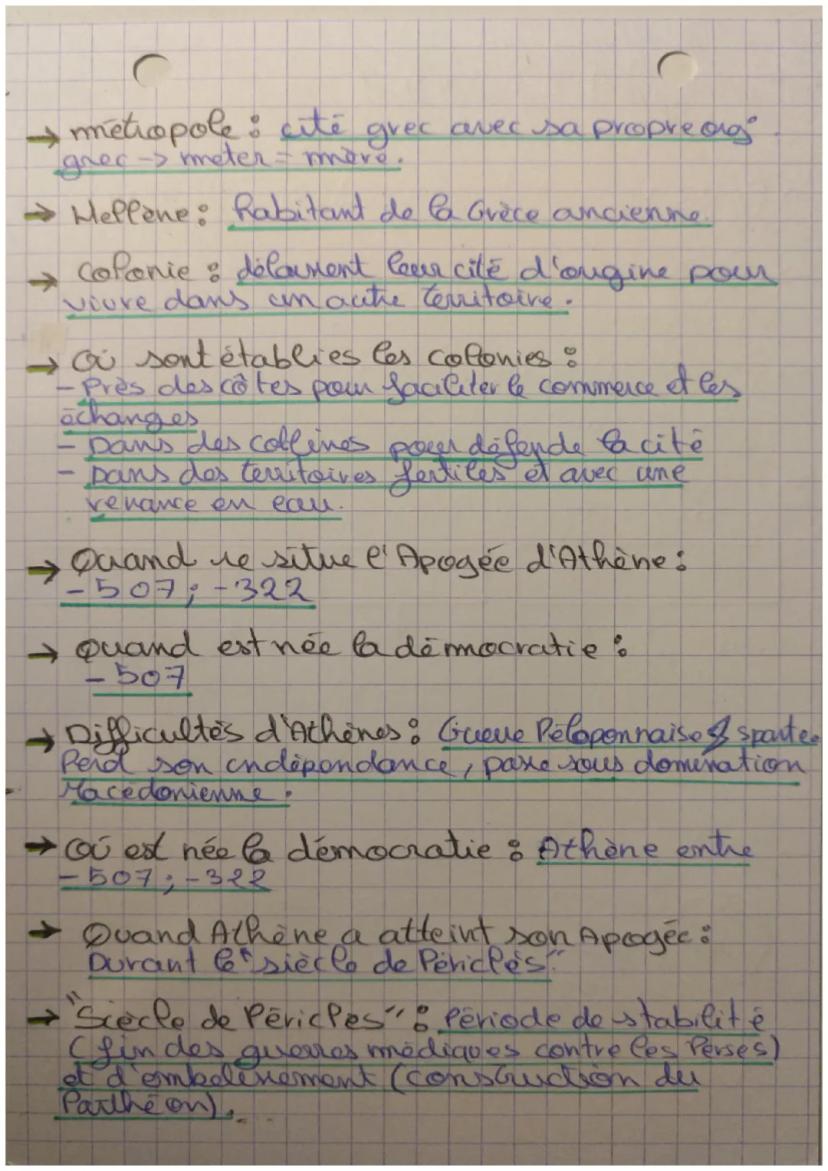 → métropole : cité grec avec sa propre org°.
grec -> meter = mère.
→ Hellène : habitant de la Grèce ancienne.
→ colonie : délaissent leur cité d'origine pour
vivre dans un autre territoire.
→ Où sont établies les colonies :
- Près des côtes pour faciliter le commerce et les
échanges
- Dans des collines pour défende la cité
- Dans des territoires fertiles et avec une
venance en eau.
→ Quand se situe l'Apogée d'Athène :
-507 ; -322
→ Quand est née la démocratie :
-507
→ Difficultés d'Athènes : Guerre Péloponnaise & sparte.
Perd son indépendance, passe sous domination
Macédonienne.
→ Où est née la démocratie : Athène entre
-507 ; -322
→ Quand Athène a atteint son Apogée :
Durant le "siècle de Périclès".
→ "Siècle de Périclès" : Période de stabilité
(fin des guerres médiques contre les Perses)
et d'embelissement (construction du
Parthéon).